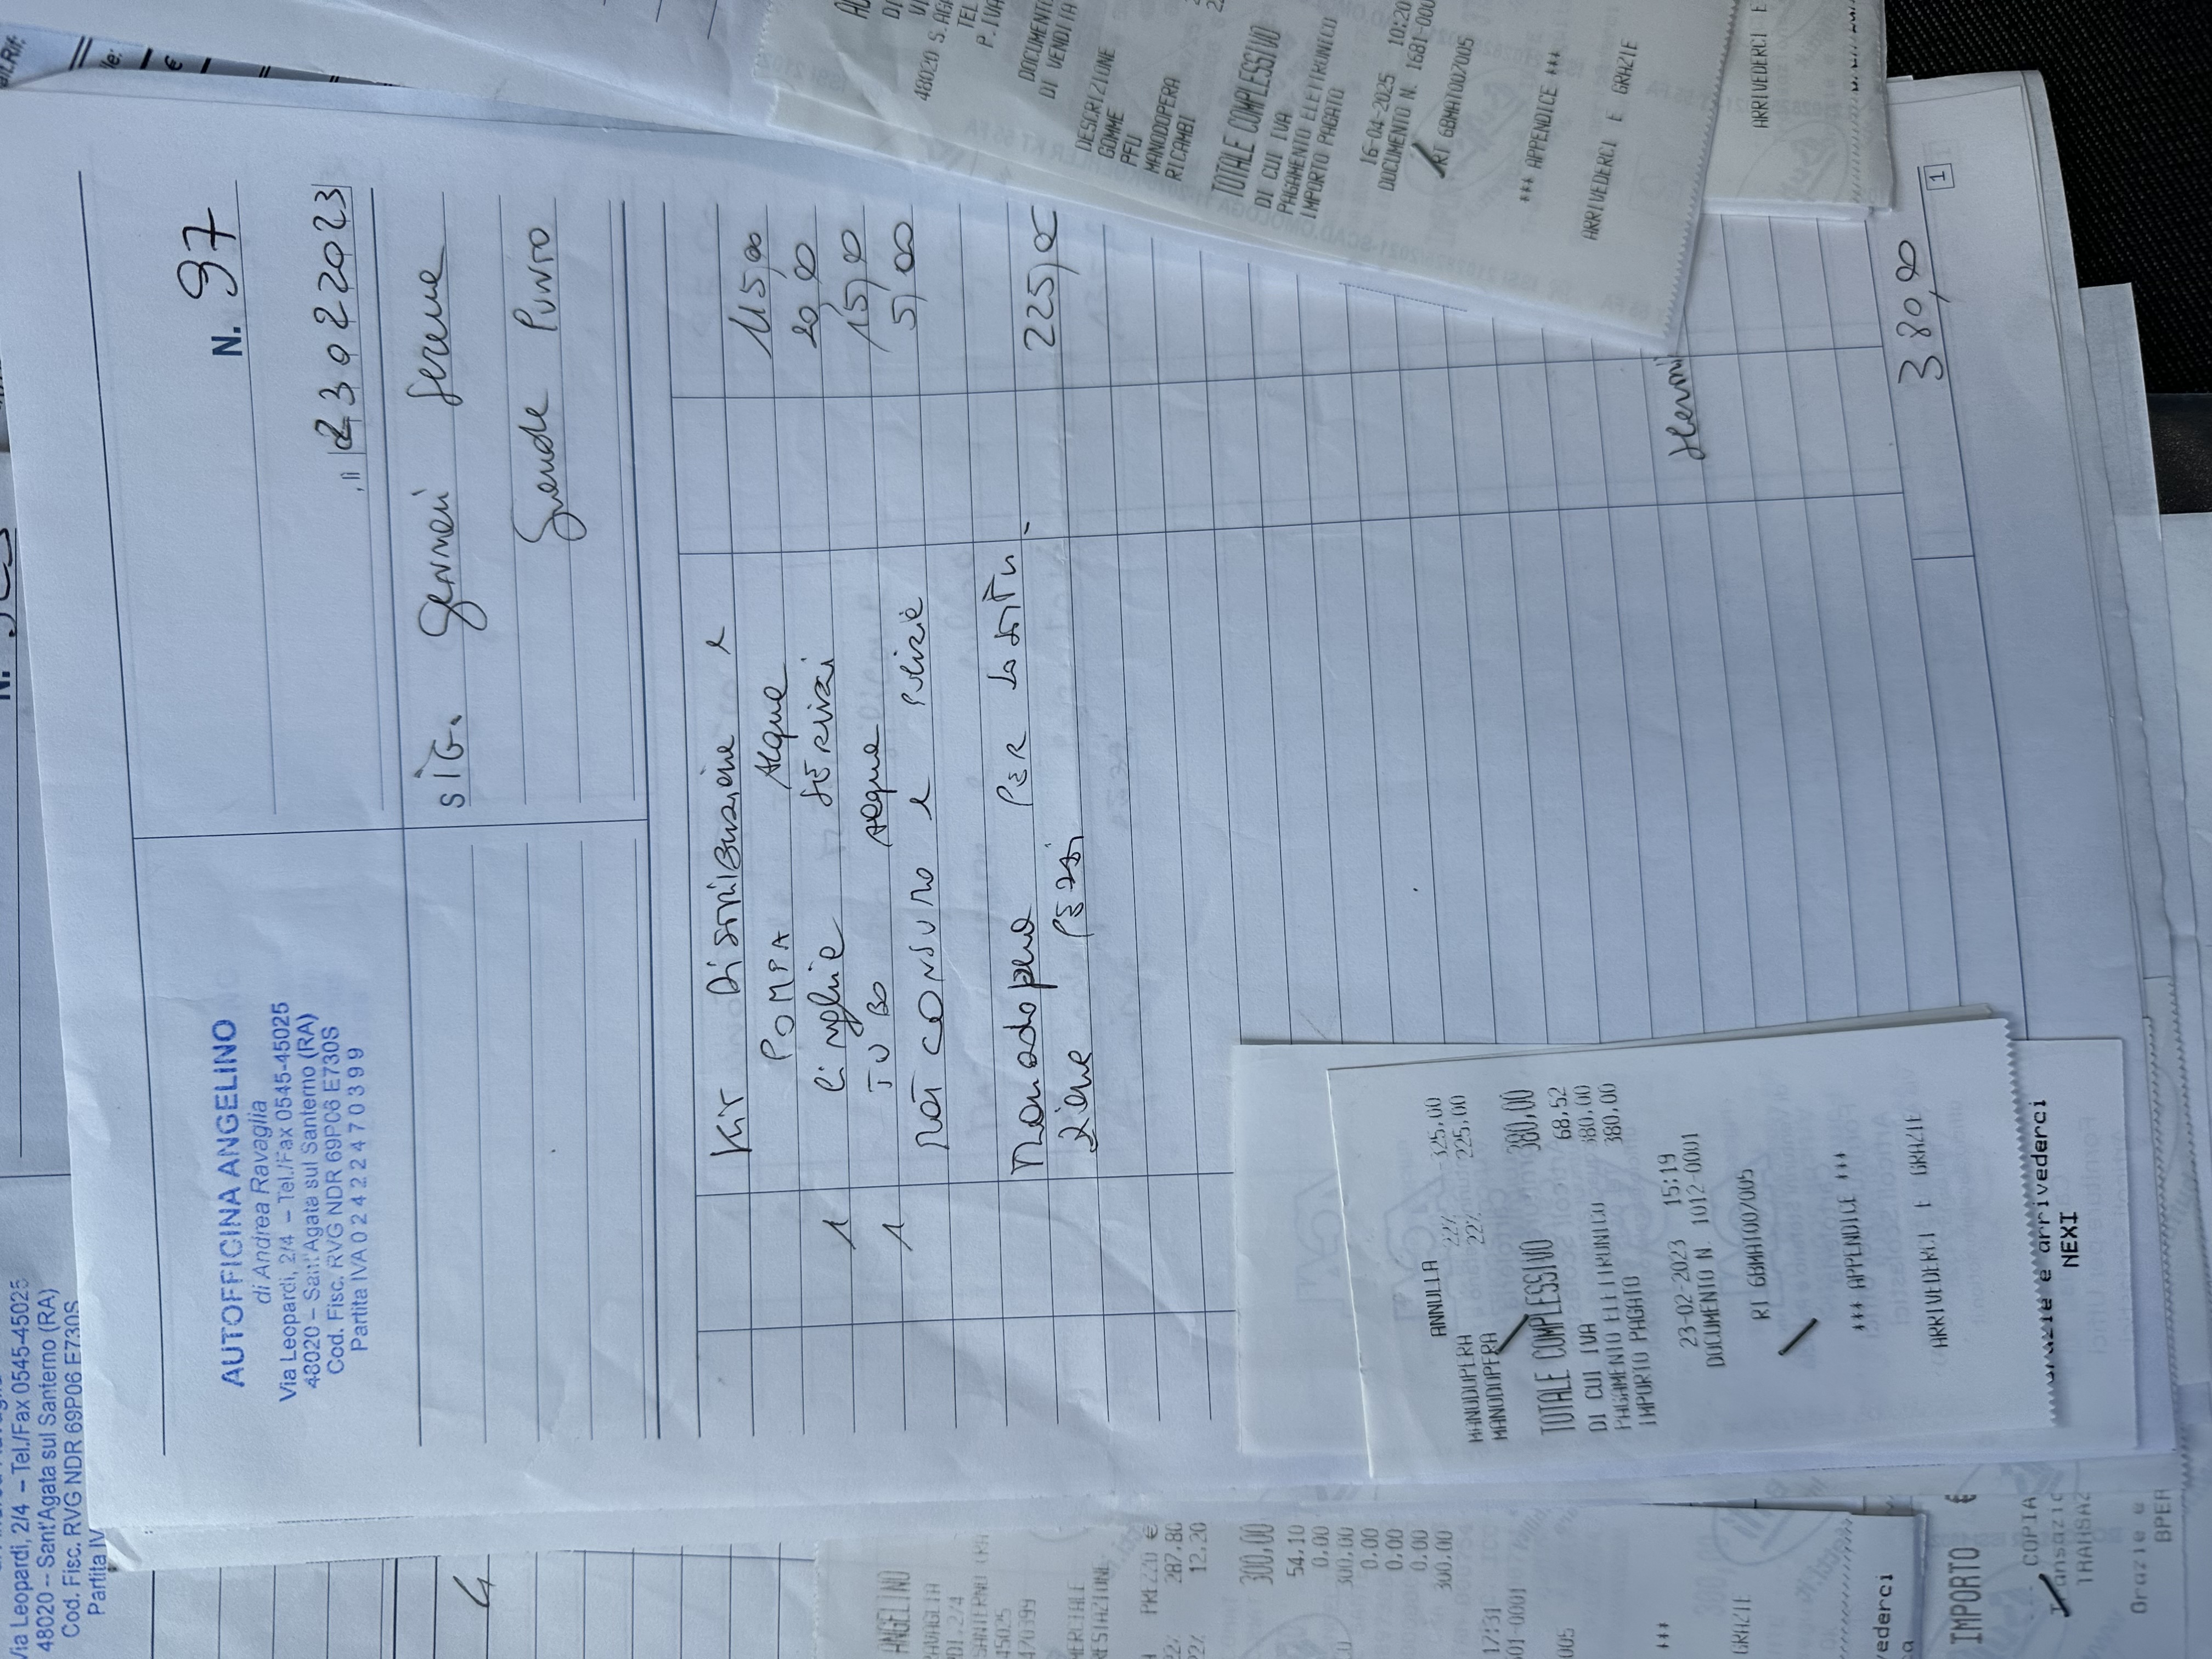 AUTOFFICINA ANGELINO
di Andrea Ravaglia
Via Leopardi, 2/4 – Tel./Fax 0545-45025
48020 – Sant'Agata sul Santerno (RA)
Cod. Fisc. RVG NDR 69P06 E730S
Partita IVA 0 2 4 2 2 4 7 0 3 9 9
N. 97
23 02 2023
SIG. Gennari Serena
Grande Punto
Kit Distribuzione e
POMPA Acqua 115,00
1 Cinghia Servizi 20,00
1 TUBO Acqua 15,00
MAT CONSUMO e Pulizia 5,00
Manodopera PER Sostitu-
zione Pezzi 225,00
380,00
1
ANNULLA
MANODOPERA 22% -325,00
MANODOPERA 22% 225,00
TOTALE COMPLESSIVO 380,00
DI CUI IVA 68,52
PAGAMENTO ELETTRONICO 380,00
IMPORTO PAGATO 380,00
23-02-2023 15:19
DOCUMENTO N. 1012-0001
RT 6BMAT007005
*** APPENDICE ***
ARRIVEDERCI E GRAZIE
Grazie e arrivederci
NEXI
48020 S.AGA
TEL
P.IVA
DOCUMENTO
DI VENDITA
DESCRIZIONE
GOMME
PFU
MANODOPERA
RICAMBI
TOTALE COMPLESSIVO
DI CUI IVA
PAGAMENTO ELETTRONICO
IMPORTO PAGATO
16-04-2025 10:20
DOCUMENTO N. 1681-000
RT 6BMAT007005
*** APPENDICE ***
ARRIVEDERCI E GRAZIE
ARRIVEDERCI E
Via Leopardi, 2/4 – Tel./Fax 0545-45025
48020 – Sant'Agata sul Santerno (RA)
Cod. Fisc. RVG NDR 69P06 E730S
Partita IV
ANGELINO
RAVAGLIA
PREZZO €
22% 287,80
22% 12,20
300,00
54,10
0,00
300,00
0,00
0,00
0,00
300,00
17:31
01-0001
005
***
GRAZIE
vederci
IMPORTO €
COPIA
Transazio
TRANSAZ
Grazie e
BPER